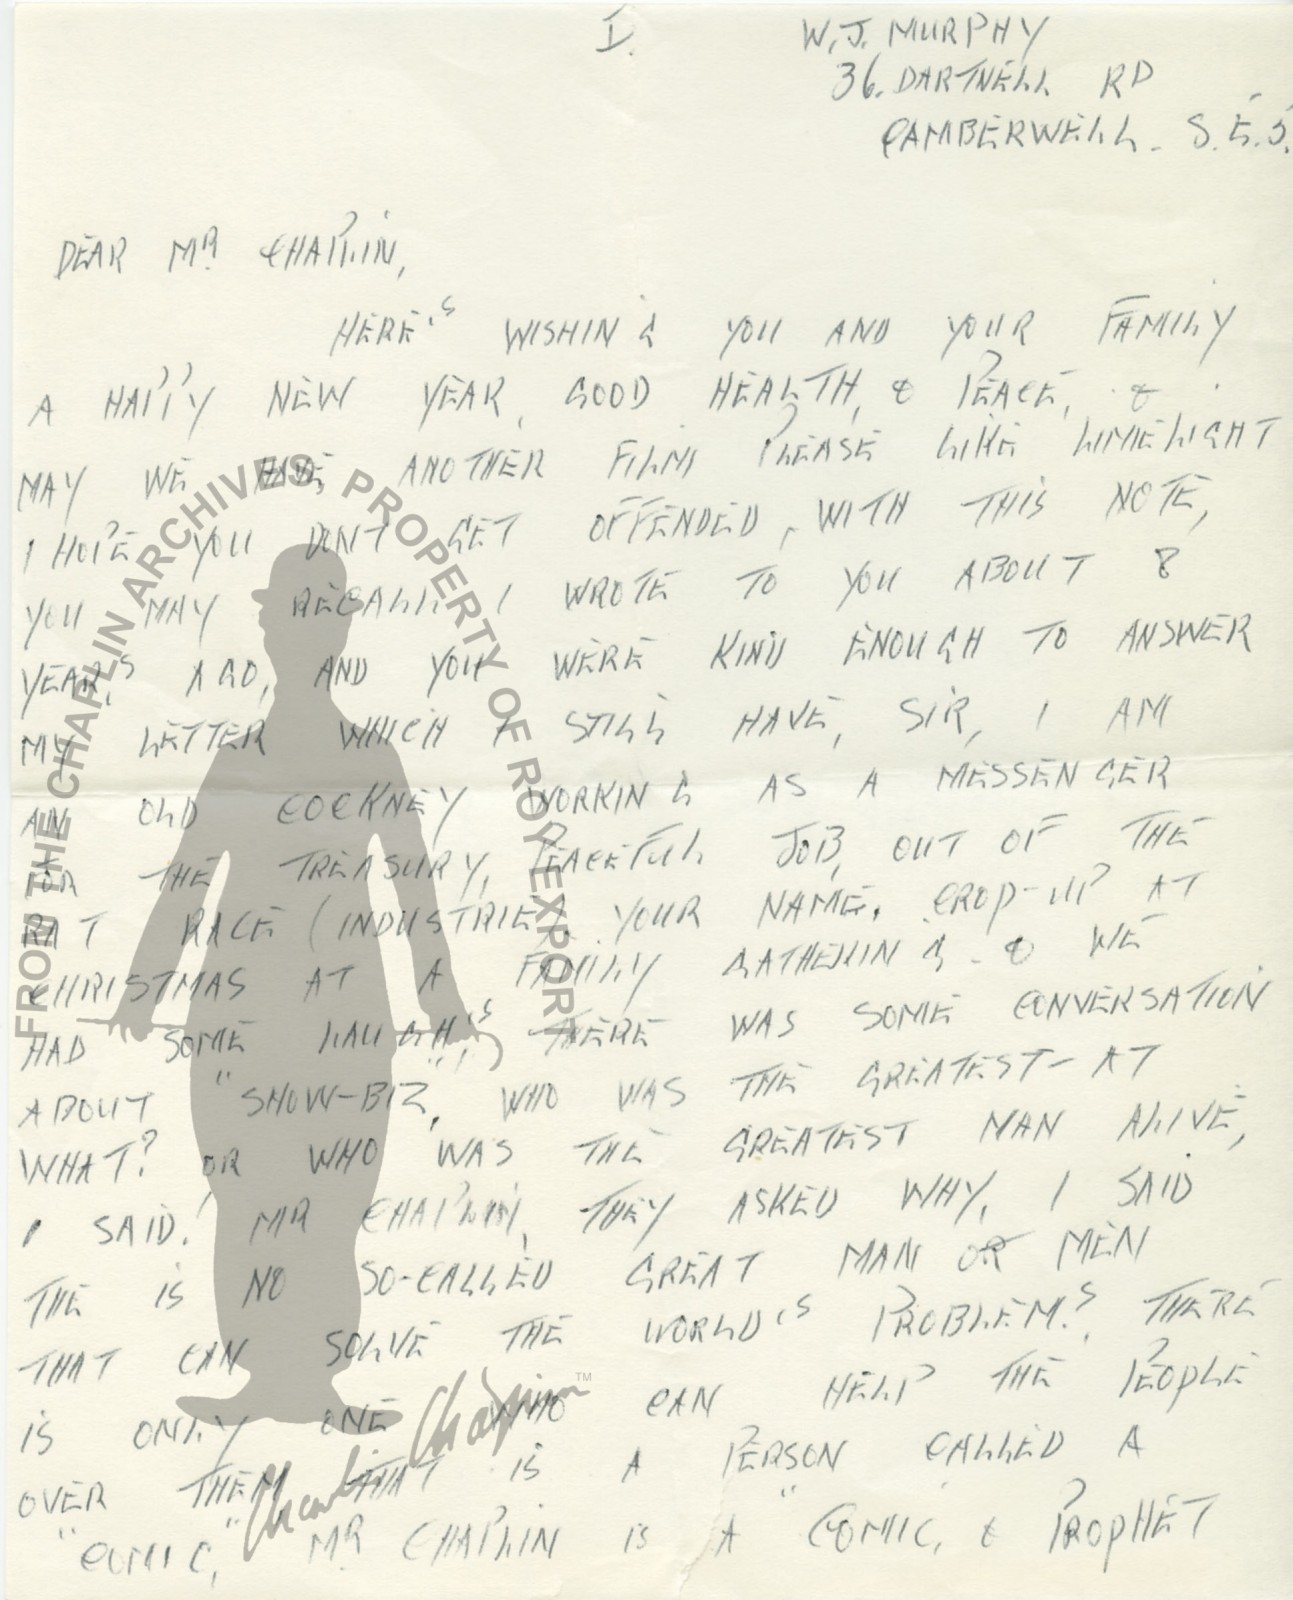 I.
W. J. MURPHY
36. DARTNELL RD
CAMBERWELL. S.E.5.
DEAR MR CHAPLIN,
HERE'S WISHING YOU AND YOUR FAMILY
A HAPPY NEW YEAR, GOOD HEALTH, & PEACE, &
MAY WE HAVE ANOTHER FILM PLEASE LIKE LIMELIGHT
I HOPE YOU DONT GET OFFENDED, WITH THIS NOTE,
YOU MAY RECALL I WROTE TO YOU ABOUT 8
YEAR'S AGO, AND YOU WERE KIND ENOUGH TO ANSWER
MY LETTER WHICH I STILL HAVE, SIR, I AM
AN OLD COCKNEY WORKING AS A MESSENGER
FOR THE TREASURY, PEACEFUL JOB, OUT OF THE
RAT RACE (INDUSTRIE). YOUR NAME, CROP-UP AT
CHRISTMAS AT A FAMILY GATHERING - & WE
HAD SOME LAUGH'S, THERE WAS SOME CONVERSATION
ABOUT "SHOW-BIZ", WHO WAS THE GREATEST - AT
WHAT? OR WHO WAS THE GREATEST MAN ALIVE,
I SAID! MR CHAPLIN, THEY ASKED WHY, I SAID
THE IS NO SO-CALLED GREAT MAN OR MEN
THAT CAN SOLVE THE WORLD'S PROBLEM'S, THERE
IS ONLY ONE WHO CAN HELP THE PEOPLE
OVER THEM THAT IS A PERSON CALLED A
"COMIC," MR CHAPLIN IS A "COMIC, & PROPHET
FROM THE CHAPLIN ARCHIVES. PROPERTY OF ROY EXPORT
Charlie Chaplin™